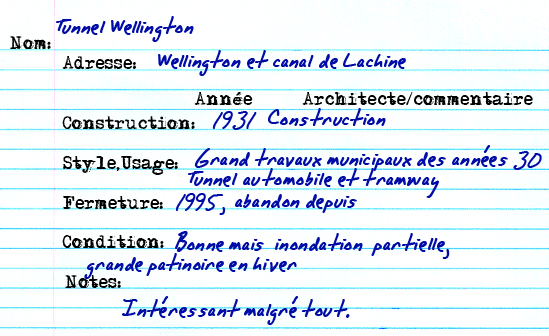 Nom: Tunnel Wellington
Adresse: Wellington et canal de Lachine
Année Architecte/commentaire
Construction: 1931 Construction
Style,Usage: Grand travaux municipaux des années 30
Tunnel automobile et tramway
Fermeture: 1995, abandon depuis
Condition: Bonne mais inondation partielle,
grande patinoire en hiver
Notes:
Intéressant malgré tout.